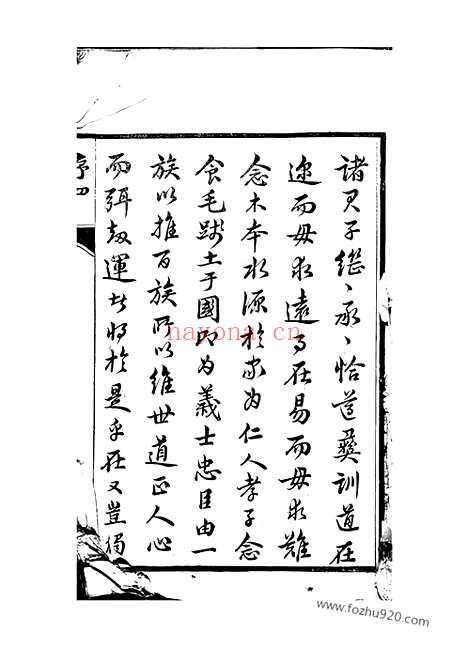 諸君子繼〻承〻恪遵彞訓道在
迩而毋求遠事在易而毋求難
念木本水源於家为仁人孝子念
食毛踐土于國即为義士忠臣由一
族以推百族所以維世道正人心
而弭劫運者将於是乎在又豈獨
序四
nayona.cn
www.fozhu920.com